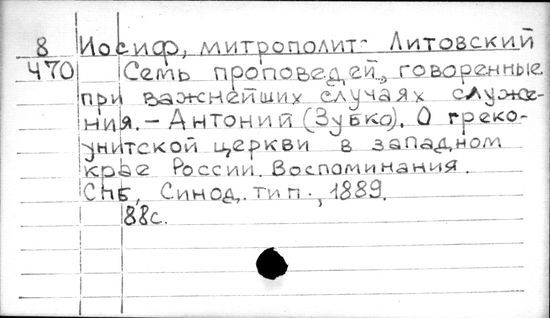 8 Иосиф, митрополит Литовский
470 Семь проповедей, говоренные
при важнейших случаях служе-
ния. – Антоний (Зубко). О греко-
унитской церкви в западном
крае России. Воспоминания.
СПБ, Синод. тип., 1889.
88с.